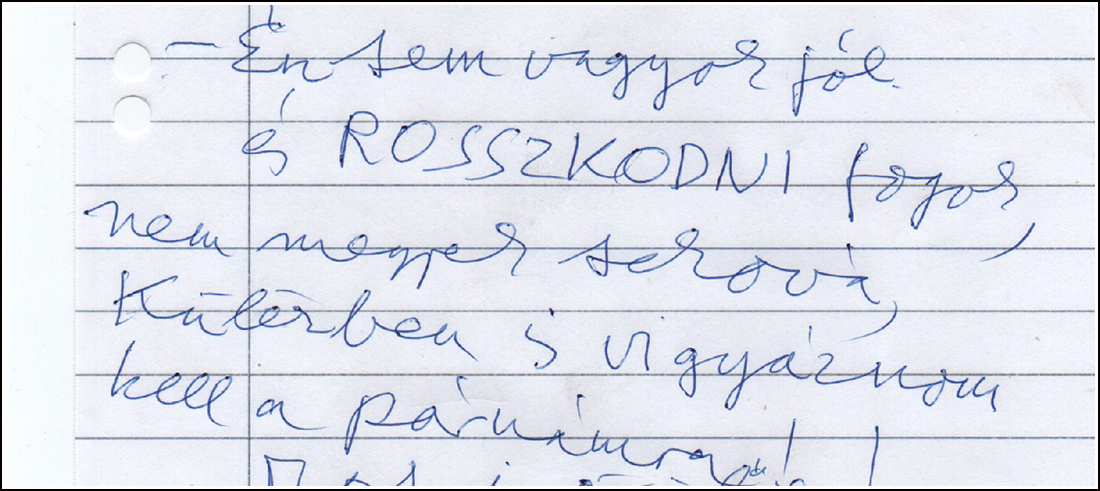 – Én sem vagyok jól
és ROSSZKODNI fogok,
nem megyek sehová,
Kültérben is vigyáznom
kell a párnámra!!